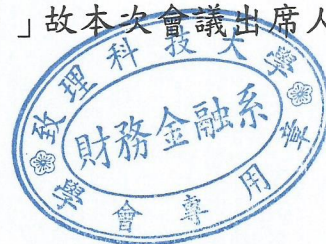 」故本次會議出席人
致理科技大學
財務金融系
學會專用章